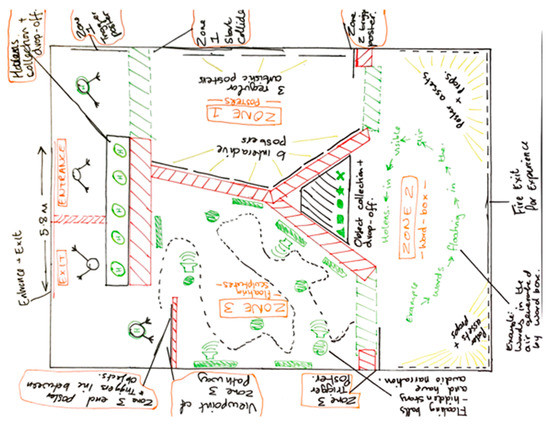 Hololens
collection +
drop-off.
Zone
1
Trigger
poster
Zone
1
Start
Collide
Zone
2 trigger
poster.
3 regular
artwine posters
ZONE 1
- POSTERS -
6 interactive
posters
Poster assets
+ props.
Entrance + Exit
5.8 m
ENTRANCE
EXIT
H
H
H
H
H
Object collection +
drop-off.
ZONE 2
- word-box -
Example
words
floating
in
the
air
while
Hololens
in
Fire Exit
for Experience
ZONE 3
- Floating
sculptures -
Poster
assets +
props
Example:
words in the
air generated
by word box.
Zone 3 end poster
+ Trigger line between
objects.
Viewpoint of
Zone 3
Pathway
Zone 3
Trigger
Poster.
Floating balls
- hidden story
and have
audio narration.